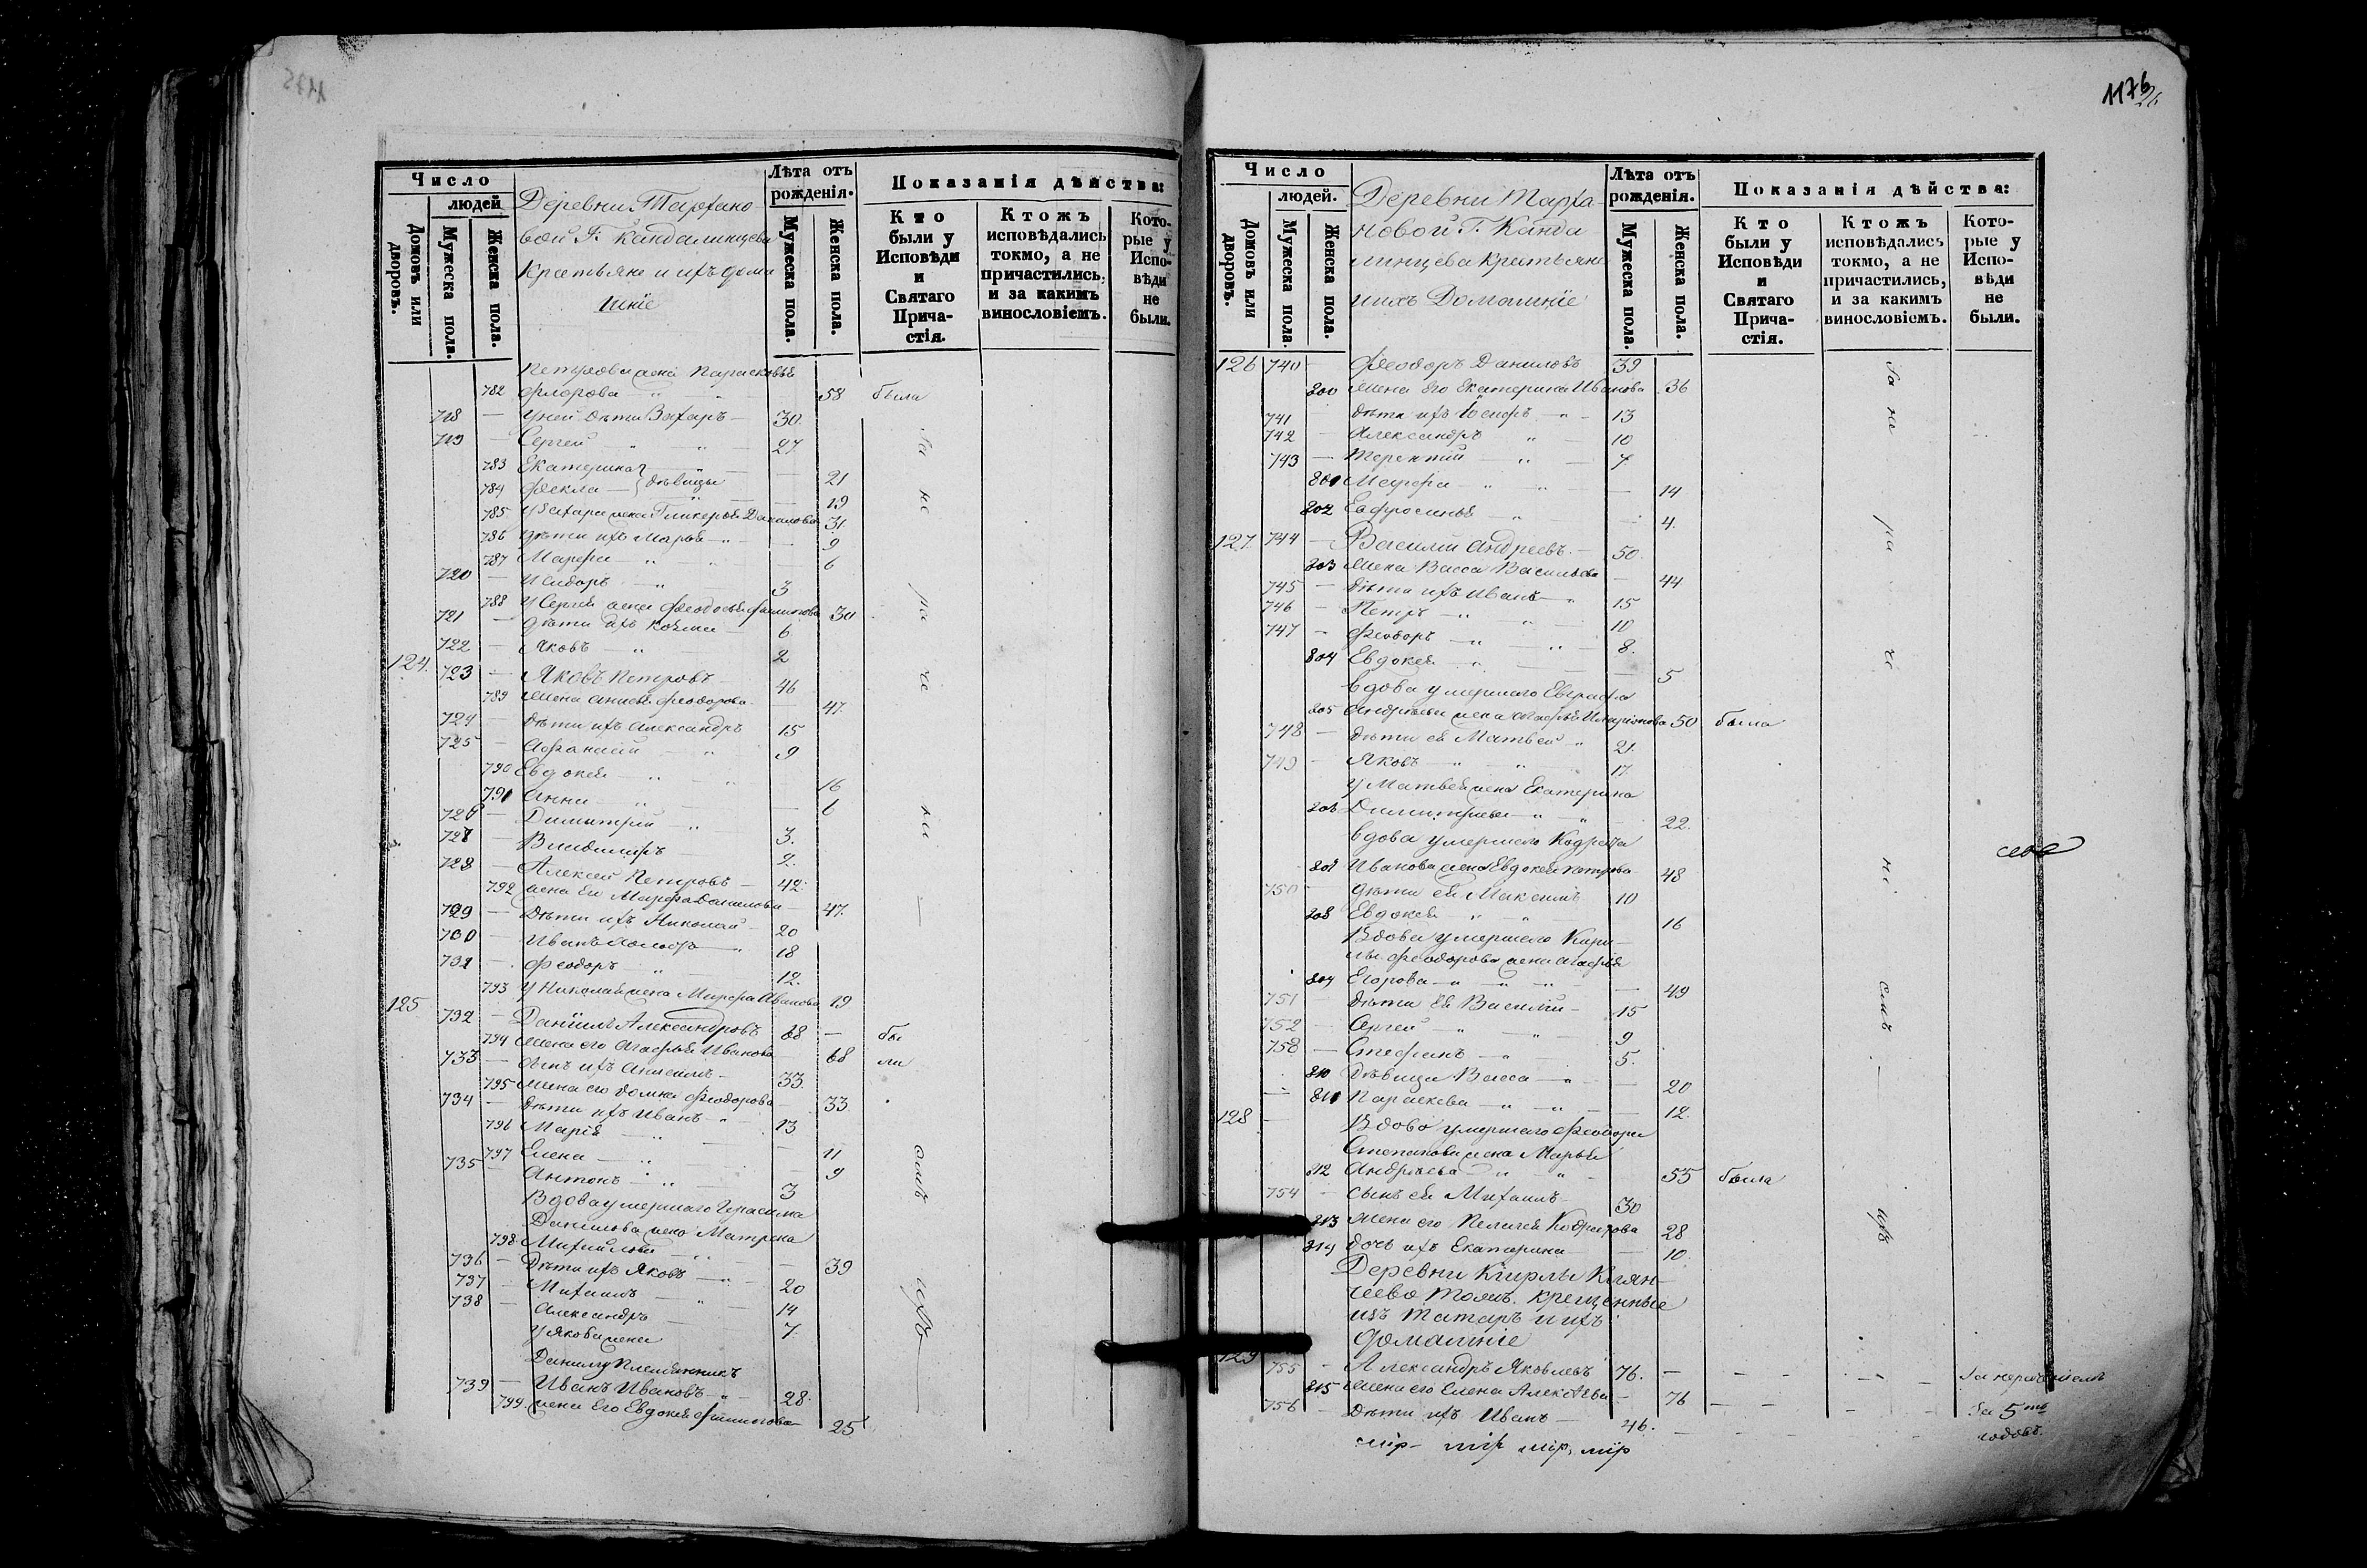 Число
людей
Домовъ или дворовъ.
Мужеска пола.
Женска пола.
Деревни Тархано-
вой Г. Кандалинцева
Крестьяне и ихъ дома
шніе
Лѣта отъ рожденія.
Мужеска пола.
Женска пола.
Показанія дѣйства:
Кто были у Исповѣди и Святаго Прича-стія.
Ктожъ исповѣдались токмо, а не причастились, и за какимъ винословіемъ.
Кото-рые у Испо-вѣди не были.
Петрова жена Парасковья
782 Флорова 58 была
718 — У ней дѣти Захаръ — 30.
719 — Сергей 27
783 Екатерина 21
784 Фекла — дѣвицы 19
785 У Захара жена Гликерья Данилова 31.
786 дѣти ихъ Марья 9
787 Марфа 6
720 — Исидоръ 3
788 У Сергея жена Феодосья Филипова 30
721 — дѣти ихъ Козма — 6
722 — Яковъ 2
124. 723 — Яковъ Петровъ 46
789 Жена Анисья Феодорова 47.
724 — Дѣти ихъ Александръ 15
725 — Афанасій 9
790 Евдокея 16
791 Анна 6
726 — Димитрій 3.
727 — Владиміръ 2.
728 — Алексей Петровъ — 42.
792 жена Ея Марфа Данилова 47.
729 — Дѣти ихъ Николай 20
730 — Иванъ 18
731 — Феодоръ 12.
793 У Николая жена Марфа Иванова 19
125 732 — Даніилъ Александровъ 68 — бы
794 Жена его Агафья Иванова 68 ли
733 — Сынъ ихъ Анисимъ 33
795 Жена его Домна Феодорова 33
734 — Дѣти ихъ Иванъ 13
796 Марія 11
797 Елена 9
735 — Антонъ 3
Вдова умершаго Герасима
Данилова жена Матрена
798 Михайлова 39
736 — Дѣти ихъ Яковъ 20
737 — Михаилъ 14
738 — Александръ 7
У Якова жена
Данилу Племянникъ
739 — Иванъ Ивановъ 28.
799. жена Его Евдокея Филипова 25
За не ра че ні емъ ихъ
1176
26
Число
людей.
Домовъ или дворовъ.
Мужеска пола.
Женска пола.
Деревни Тарха-
новой Г. Канда-
линцева Крестьяне
и ихъ Домашніе
Лѣта отъ рожденія.
Мужеска пола.
Женска пола.
Показанія дѣйства:
Кто были у Исповѣди и Святаго Прича-стія.
Ктожъ исповѣдались токмо, а не причастились, и за какимъ винословіемъ.
Кото-рые у Испо-вѣди не были.
126 740 Феодоръ Даниловъ 39
800 Жена его Екатерина Иванова 36
741 — Дѣти ихъ Іосифъ 13
742 — Александръ 10
743 — Терентій 7
801 Марфа 14
802 Евфросинья 4.
127. 744 — Василій Андреевъ. 50.
803 Жена Васса Васильева 44
745 — Дѣти ихъ Иванъ 15
746 — Петръ 10
747 — Феодоръ 8.
804 Евдокея 5
вдова умершаго Евграфа
805 Андреева жена Агафья Иларіонова 50 была
748 — дѣти ея Матвей 21.
749 — Яковъ 17.
У Матвея жена Екатерина
806 Димитриева 22.
вдова умершаго Кодрата
807 Иванова жена Евдокея Петрова 48
750 — дѣти ея Максимъ 10
808 Евдокея 16
Вдова умершаго Кири-
лы Феодорова жена Агафья
809 Егорова 49
751 — Дѣти Ея Василій — 15
752 — Сергей 9
753 — Стефанъ 5.
810 Дѣвица Васса 20
811 Параскева 12.
128 — Вдова умершаго Феодора
Степанова жена Марья
812 Андреева 55 была
754 — сынъ ея Михаилъ 30
813 Жена его Пелагея Кодратова 28
814 Дочь ихъ Екатерина 10.
Деревни Кирлы Клян-
чеево тожъ. крещенные
изъ Татаръ и ихъ
домашніе
129 755 — Александръ Яковлевъ 76. — За нераченіемъ
815 Жена его Елена Алексѣева 76 За 5ть
756 — Дѣти ихъ Иванъ 46. годовъ.
За не ра че ні емъ ихъ